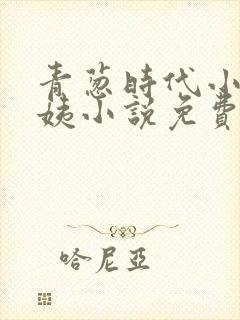 青葱時代小
姨小說免費
哈尼亞